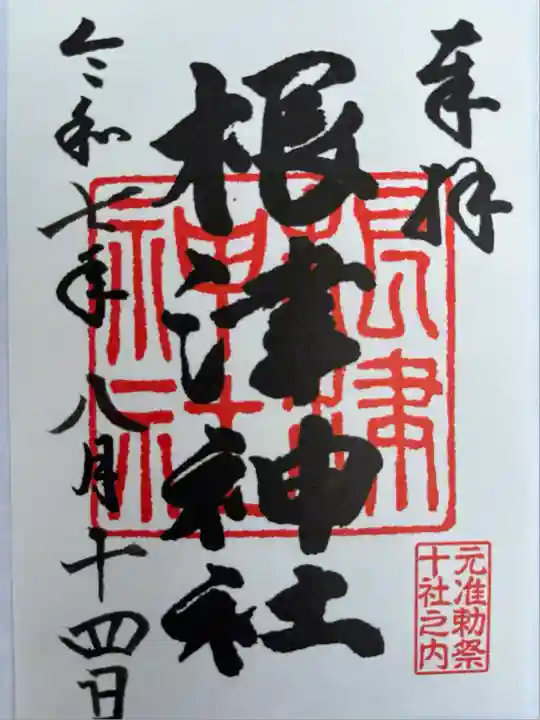 奉拝
根津神社
根津
神社
令和七年八月十四日
元准勅祭
十社之内